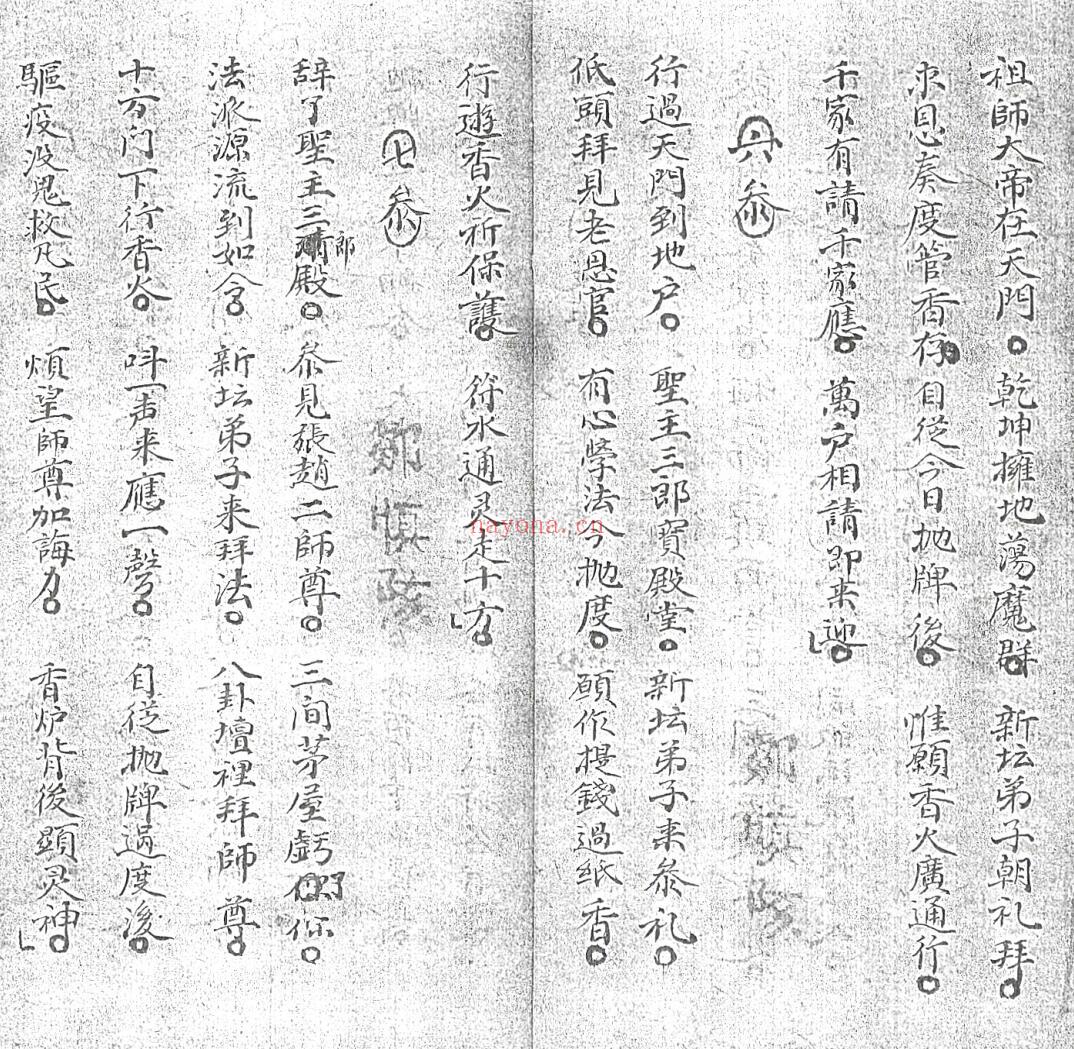 祖師大帝在天門。乾坤擁地蕩魔群。新坛弟子朝礼拜。
求恩奏度管香存。自從今日抛牌後。惟願香火廣通行。
千家有請千家應。萬户相請即来迎。
六參
行過天門到地户。聖主三郎寳殿堂。新坛弟子来叅礼。
低頭拜見老恩官。有心學法今抛度。願作提錢過紙香。
行遊香火祈保護。符水通灵走十方。
七叅
辞了聖主三郎殿。叅見張趙二師尊。三间茅屋虧了你。
法派源流到如今。新坛弟子来拜法。八卦壇裡拜師尊。
十方门下行香火。呌一声来應一聲。自從抛牌過度後。
驅疫没鬼救凡民。煩望師尊加誨力。香炉背後顯灵神。
nayona.cn